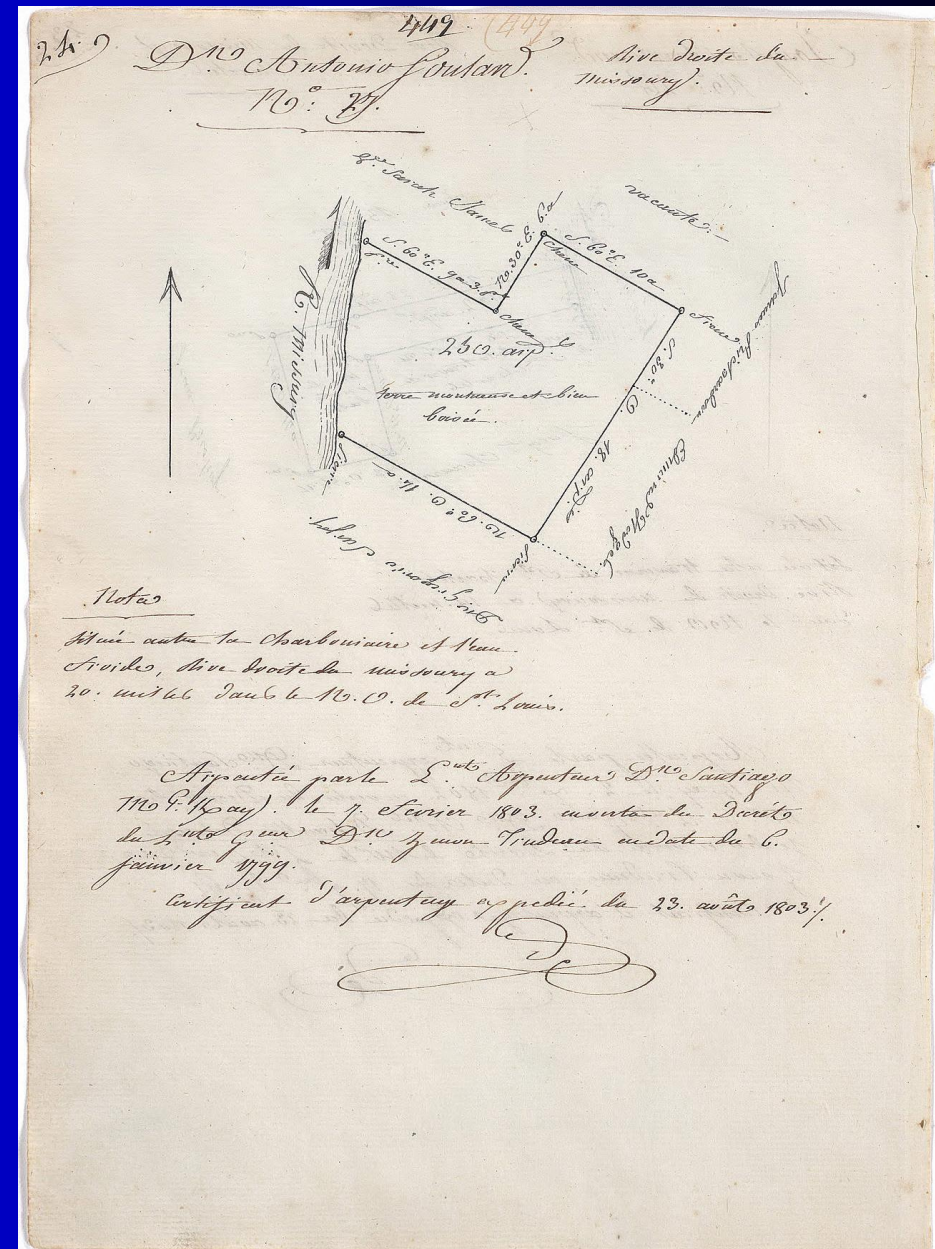 449 (449
24.
Dn. Antonio Soulard.
No. 27.
Rive droite du
Missoury.
Sarah James
vacante.
S. 60° E. 9a 3.p.
N. 30° E. 6.a
S. 60° E. 10a
Chene
Pierre
Chene
Pierre
230. arp.
R. Missoury
terre montueuse et bien
boisée.
S. 30° O. 18. arp.
James Richardson
Edmond Hodges
N. 60° O. 14.a
Pierre
Pierre
Dn. Gregorio Sarpy.
Nota
Située entre la Charboniaire et l'eau
froide, Rive droite du missoury a
20. milles dans le N. O. de St. Louis.
Arpentée par le Arpenteur Dn. Santiago
Mc. Kay. le 7. fevrier 1803. en vertu du Decrèt
du Lnt. Gneur Dn. Zenon Trudeau en date du 6.
janvier 1799.
Certificat d'arpentage expedié du 23. août 1803./.